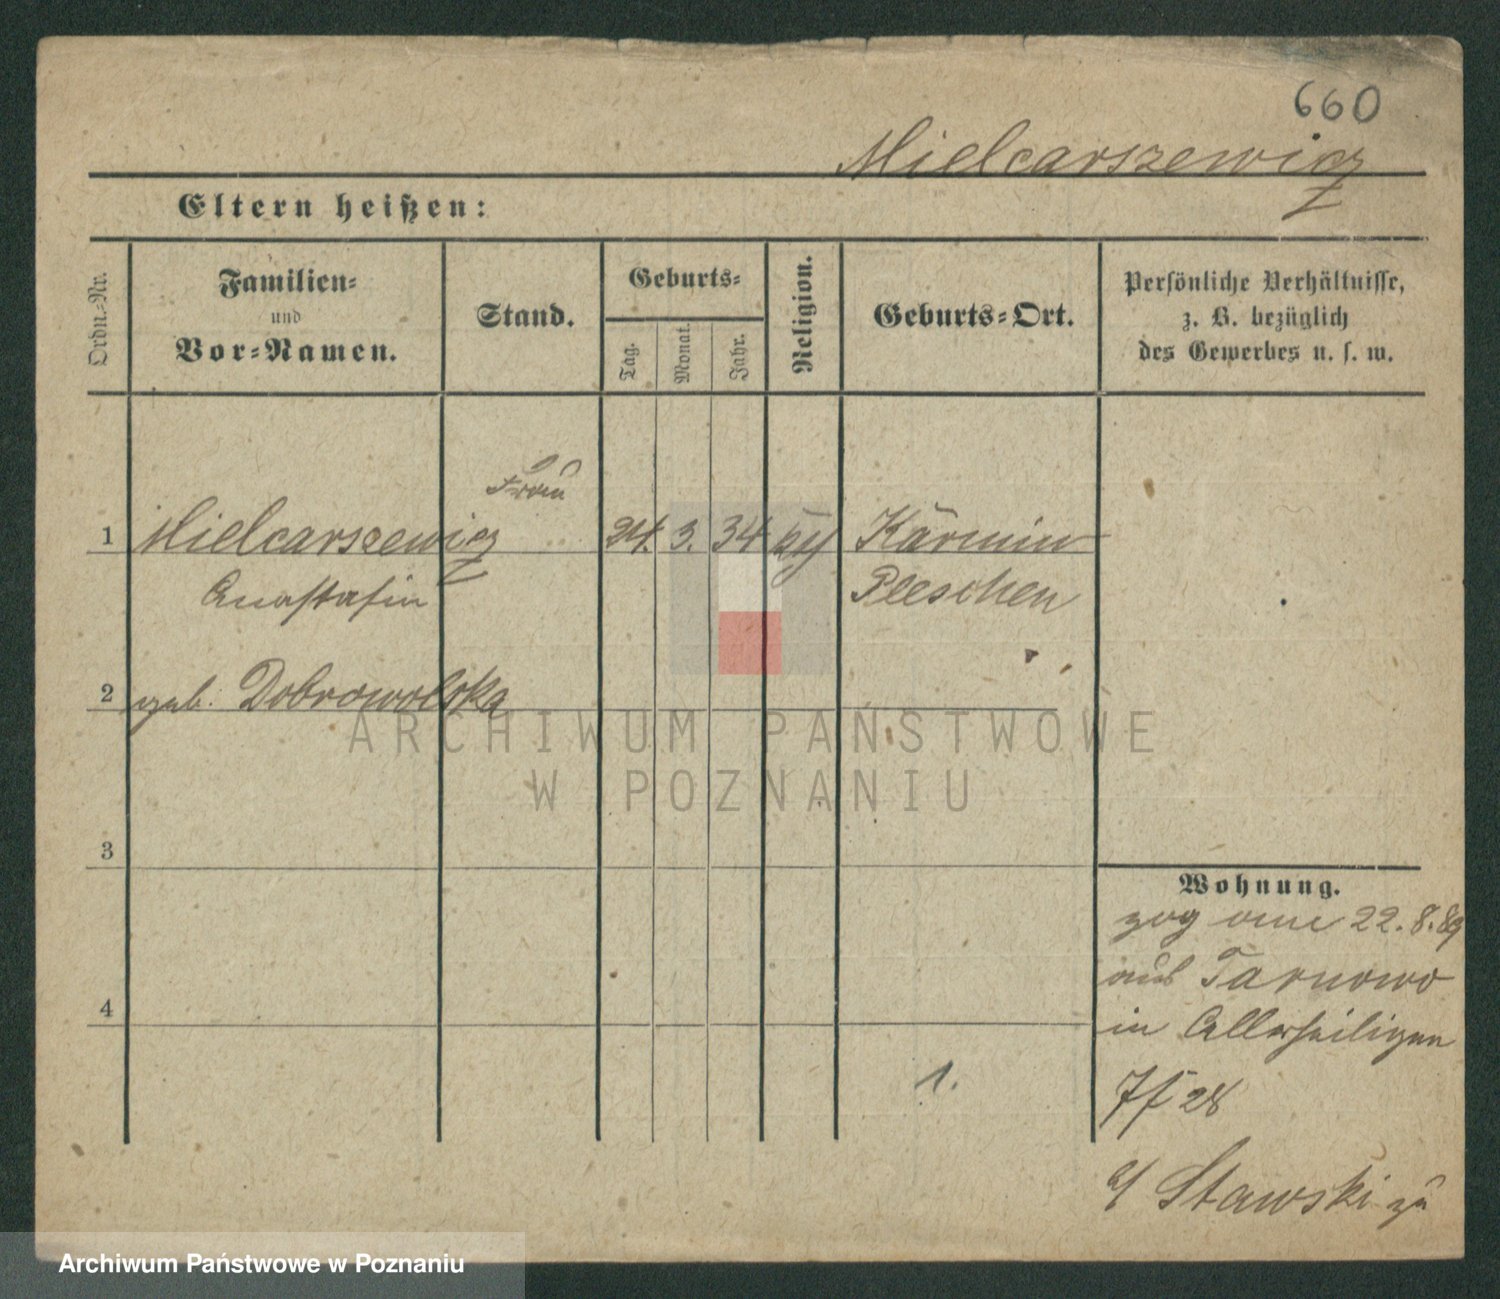 660
Mielcarszewicz
Eltern heißen:
Ordn.-Nr.
Familien-
und
Vor-Namen.
Stand.
Geburts-
Tag.
Monat.
Jahr.
Religion.
Geburts-Ort.
Persönliche Verhältnisse,
z. B. bezüglich
des Gewerbes u. s. w.
Frau
1 Mielcarszewicz 24. 3. 34 Kärmin
Anastasia Pleschen
2 geb. Dobrowolska
ARCHIWUM PAŃSTWOWE
W POZNANIU
3
Wohnung.
zog am 22.8.89
aus Tarnowo
in Allerheiligen
4
1.
28
Stawski zu
Archiwum Państwowe w Poznaniu